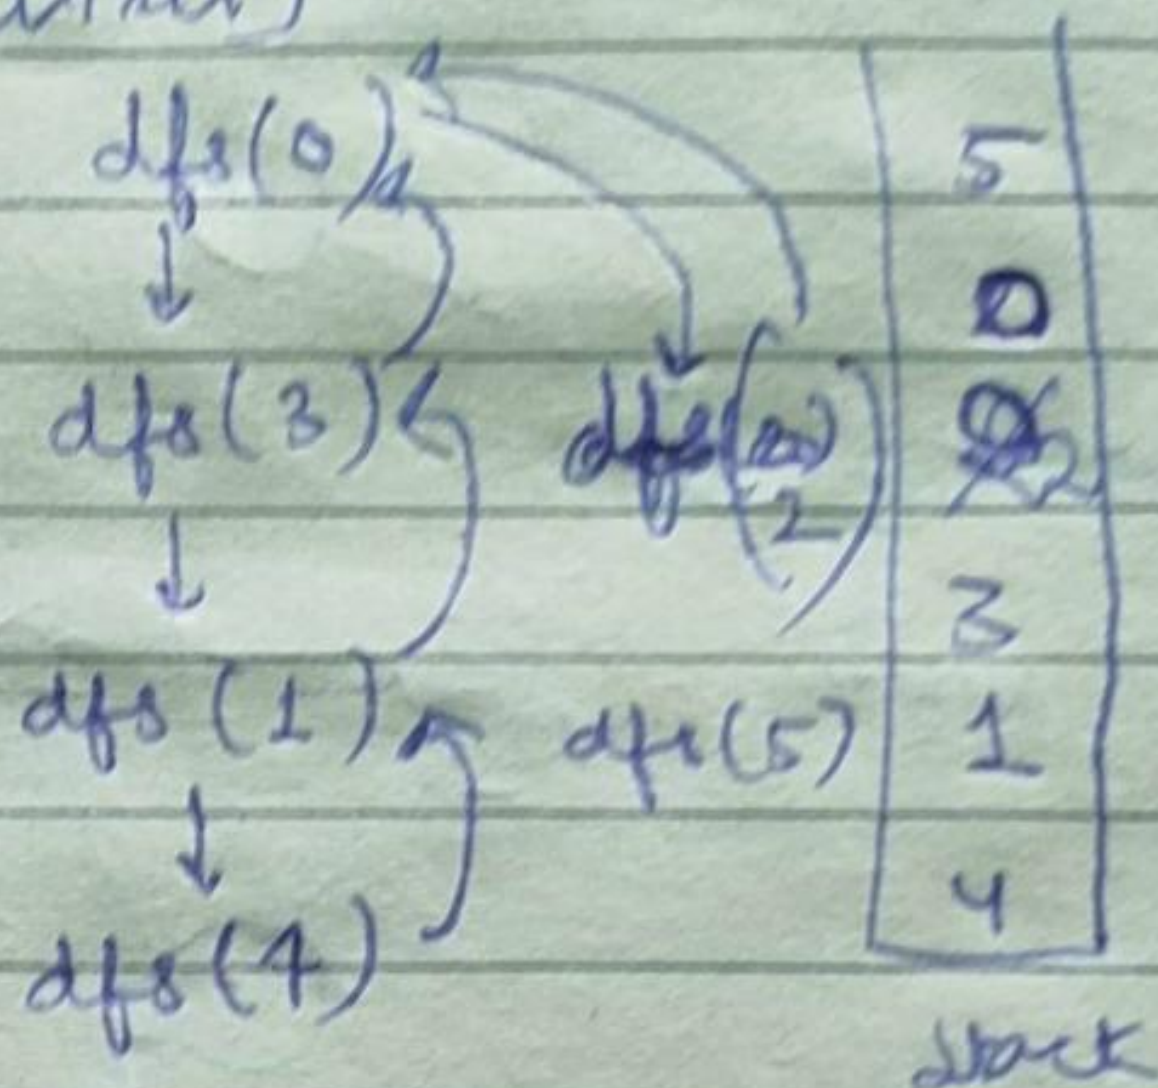 dfs(0)
dfs(3)
dfs(2)
dfs(1)
dfs(5)
dfs(4)
5
0
2
3
1
4
stack